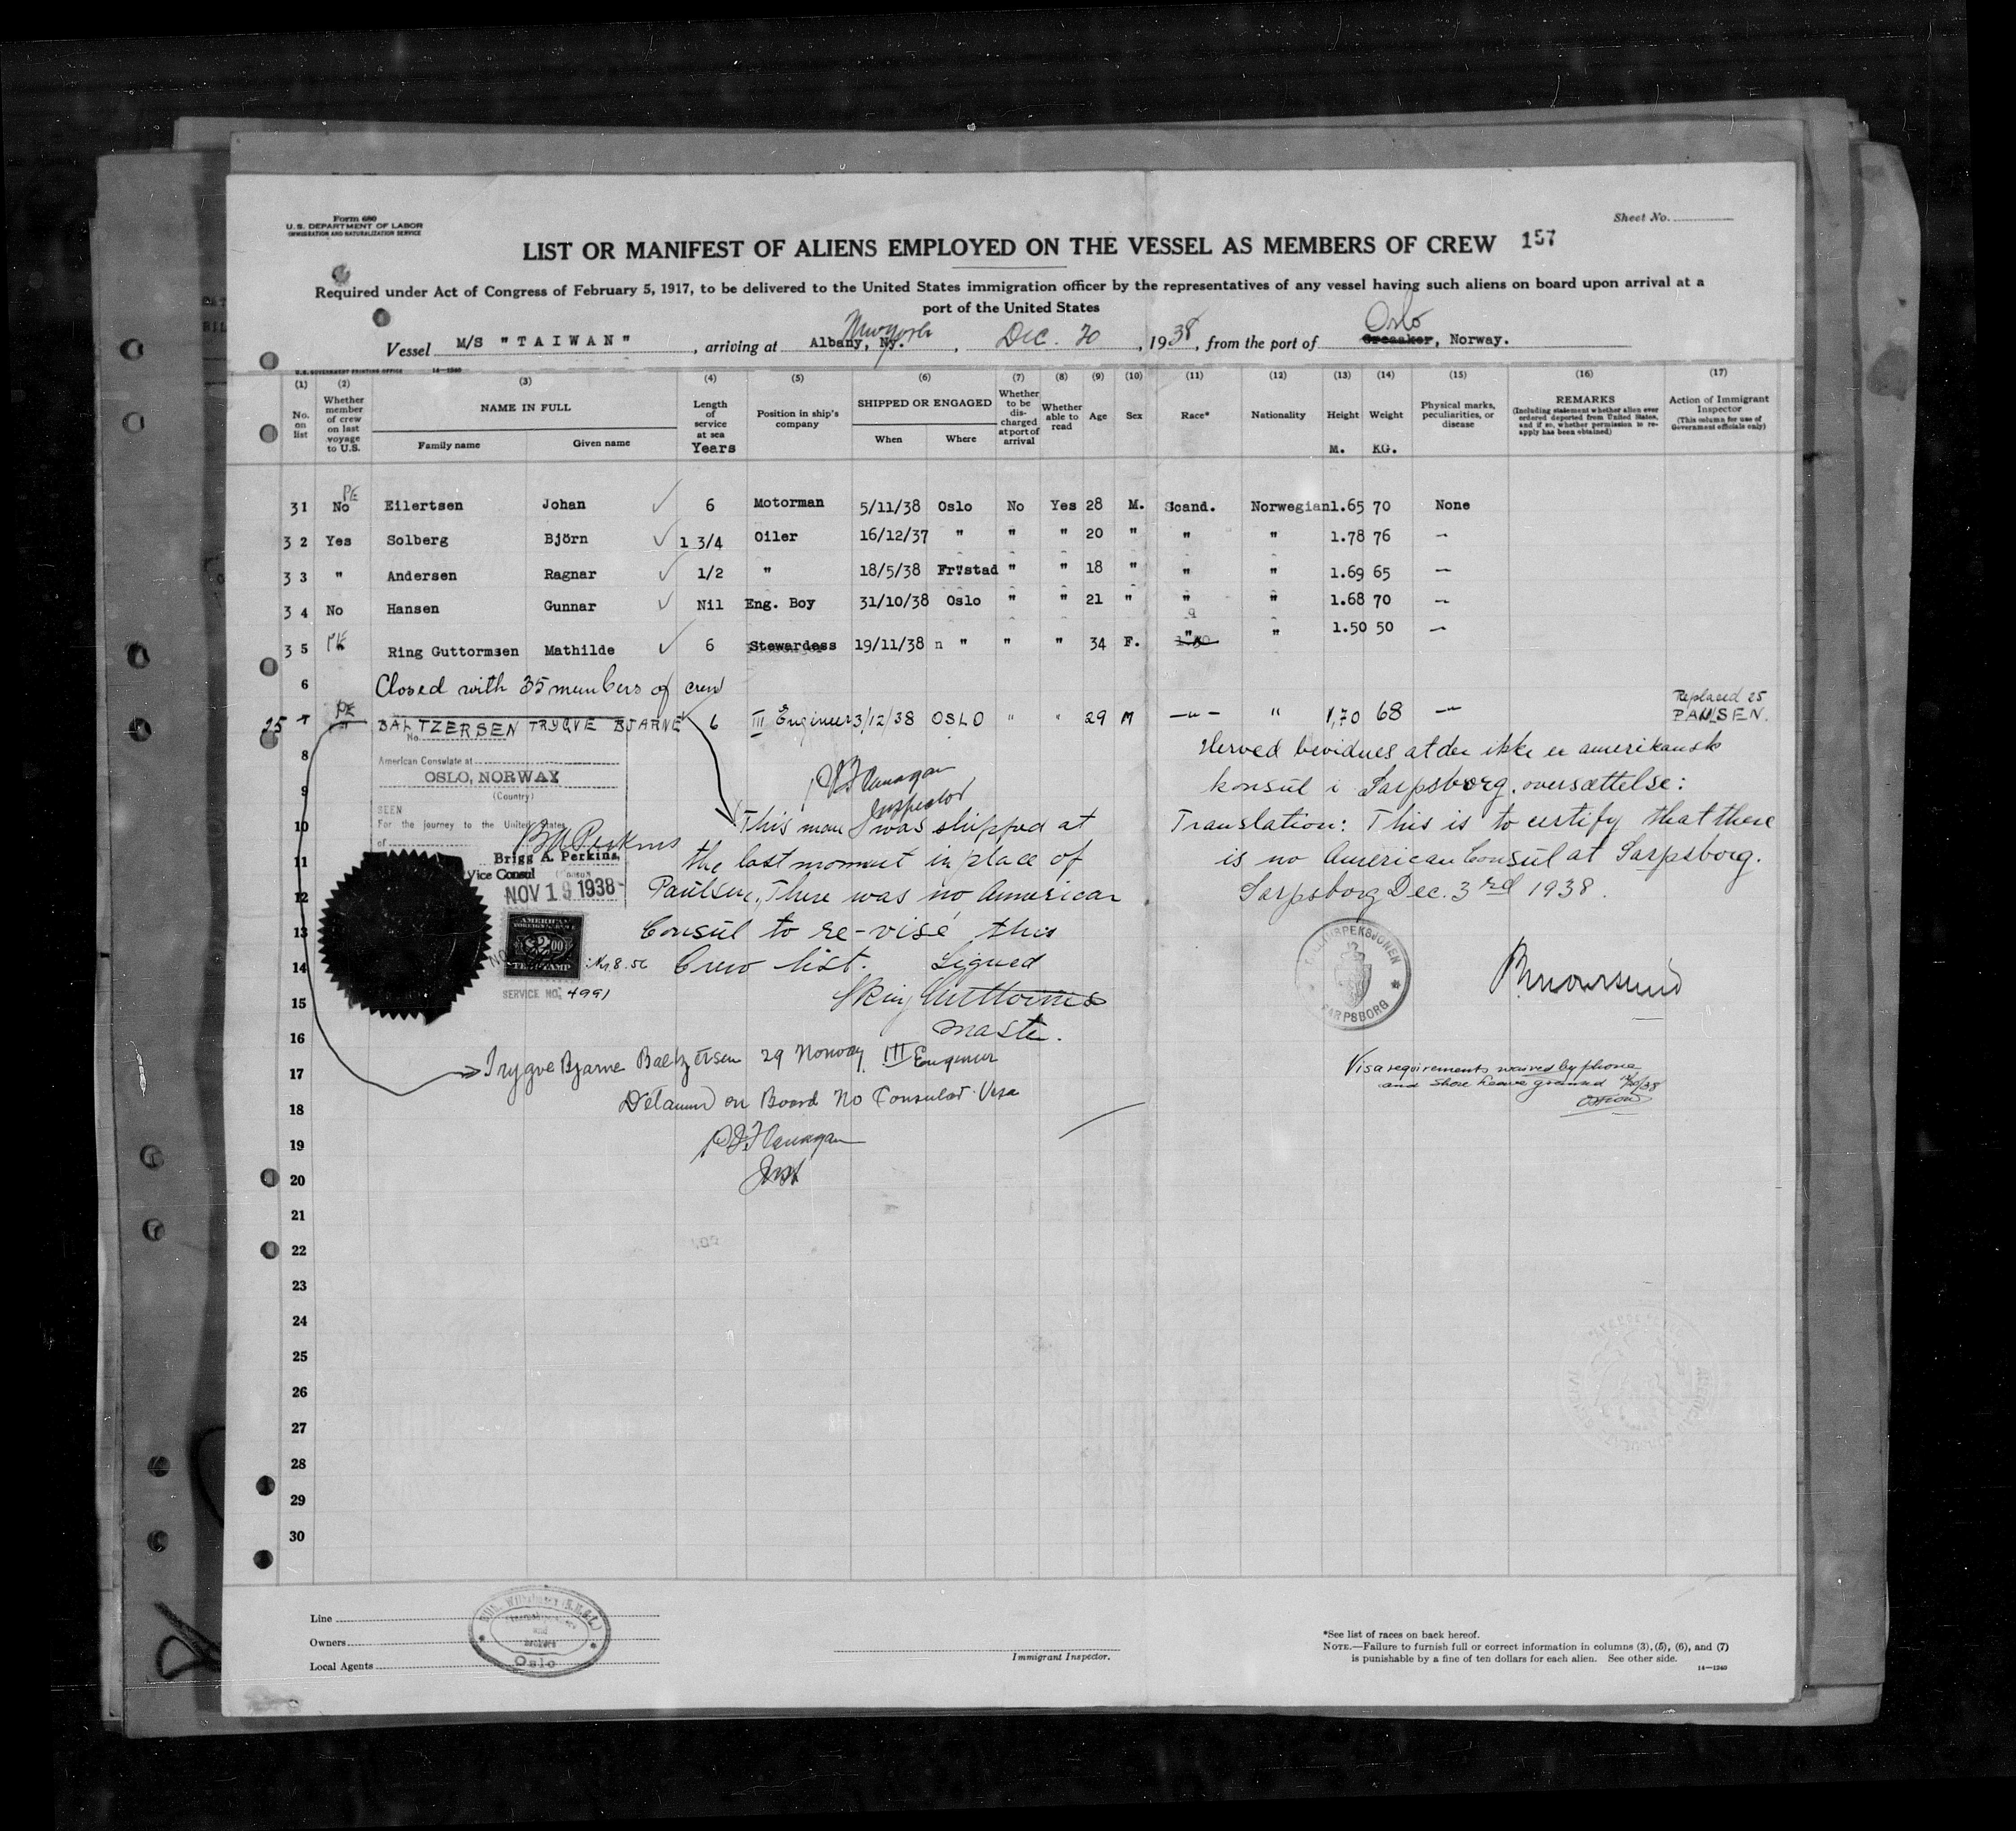 Form 680
U. S. DEPARTMENT OF LABOR
IMMIGRATION AND NATURALIZATION SERVICE
Sheet No.
LIST OR MANIFEST OF ALIENS EMPLOYED ON THE VESSEL AS MEMBERS OF CREW 157
Required under Act of Congress of February 5, 1917, to be delivered to the United States immigration officer by the representatives of any vessel having such aliens on board upon arrival at a
port of the United States
New York Oslo
Vessel M/S "TAIWAN", arriving at Albany, Ny., Dec. 20, 1938, from the port of Greaaker, Norway.
U. S. GOVERNMENT PRINTING OFFICE 14—1240
(1) (2) (3) (4) (5) (6) (7) (8) (9) (10) (11) (12) (13) (14) (15) (16) (17)
No. on list
Whether member of crew on last voyage to U.S.
NAME IN FULL
Family name
Given name
Length of service at sea
Years
Position in ship's company
SHIPPED OR ENGAGED
When
Where
Whether to be discharged at port of arrival
Whether able to read
Age
Sex
Race*
Nationality
Height
M.
Weight
KG.
Physical marks, peculiarities, or disease
REMARKS
(Including statement whether alien ever ordered deported from United States, and if so, whether permission to re-apply has been obtained)
Action of Immigrant Inspector
(This column for use of Government officials only)
PE
31 No Eilertsen Johan 6 Motorman 5/11/38 Oslo No Yes 28 M. Scand. Norwegian 1.65 70 None
32 Yes Solberg Björn 1 3/4 Oiler 16/12/37 " " " 20 " " " 1.78 76 —
33 " Andersen Ragnar 1/2 " 18/5/38 Fr"stad " " 18 " " " 1.69 65 —
34 No Hansen Gunnar Nil Eng. Boy 31/10/38 Oslo " " 21 " " " 1.68 70 —
35 PE Ring Guttormsen Mathilde 6 Stewardess 19/11/38 n " " " 34 F. " " 1.50 50 —
6 Closed with 35 members of crew
PE
25 7 " BALTZERSEN TRYGVE BJARNE 6 III Engineer 3/12/38 OSLO " " 29 M —"— " 1,70 68 —"— Replaced 25
PAULSEN.
No.
American Consulate at
OSLO, NORWAY
(Country)
SEEN
For the journey to the United States
of
BA Perkins
Brigg A. Perkins,
Vice Consul
NOV 19 1938
AMERICAN
FOREIGN SERVICE
$2.00
FEE STAMP
SERVICE NO. 4991
Flanagan
Inspector
This man was shipped at
the last moment in place of
Paulsen, There was no American
Consul to re-visé this
Crew list. Signed
Ring Guttorms
master.
Herved bevidnes at der ikke er amerikansk
konsul i Sarpsborg, oversættelse:
Translation: This is to certify that there
is no American Consul at Sarpsborg.
Sarpsborg Dec. 3rd 1938.
SARPSBORG
Trygve Bjarne Baltzersen 29 Norway III Engineer
Detained on Board No Consular Visa
Flanagan
Insp
Visa requirements waived by phone
and shore leave granted 12/20/38
8
9
10
11
12
13
14
15
16
17
18
19
20
21
22
23
24
25
26
27
28
29
30
Line
Owners
Local Agents
Oslo
Immigrant Inspector.
*See list of races on back hereof.
NOTE.—Failure to furnish full or correct information in columns (3), (5), (6), and (7)
is punishable by a fine of ten dollars for each alien. See other side.
14—1240